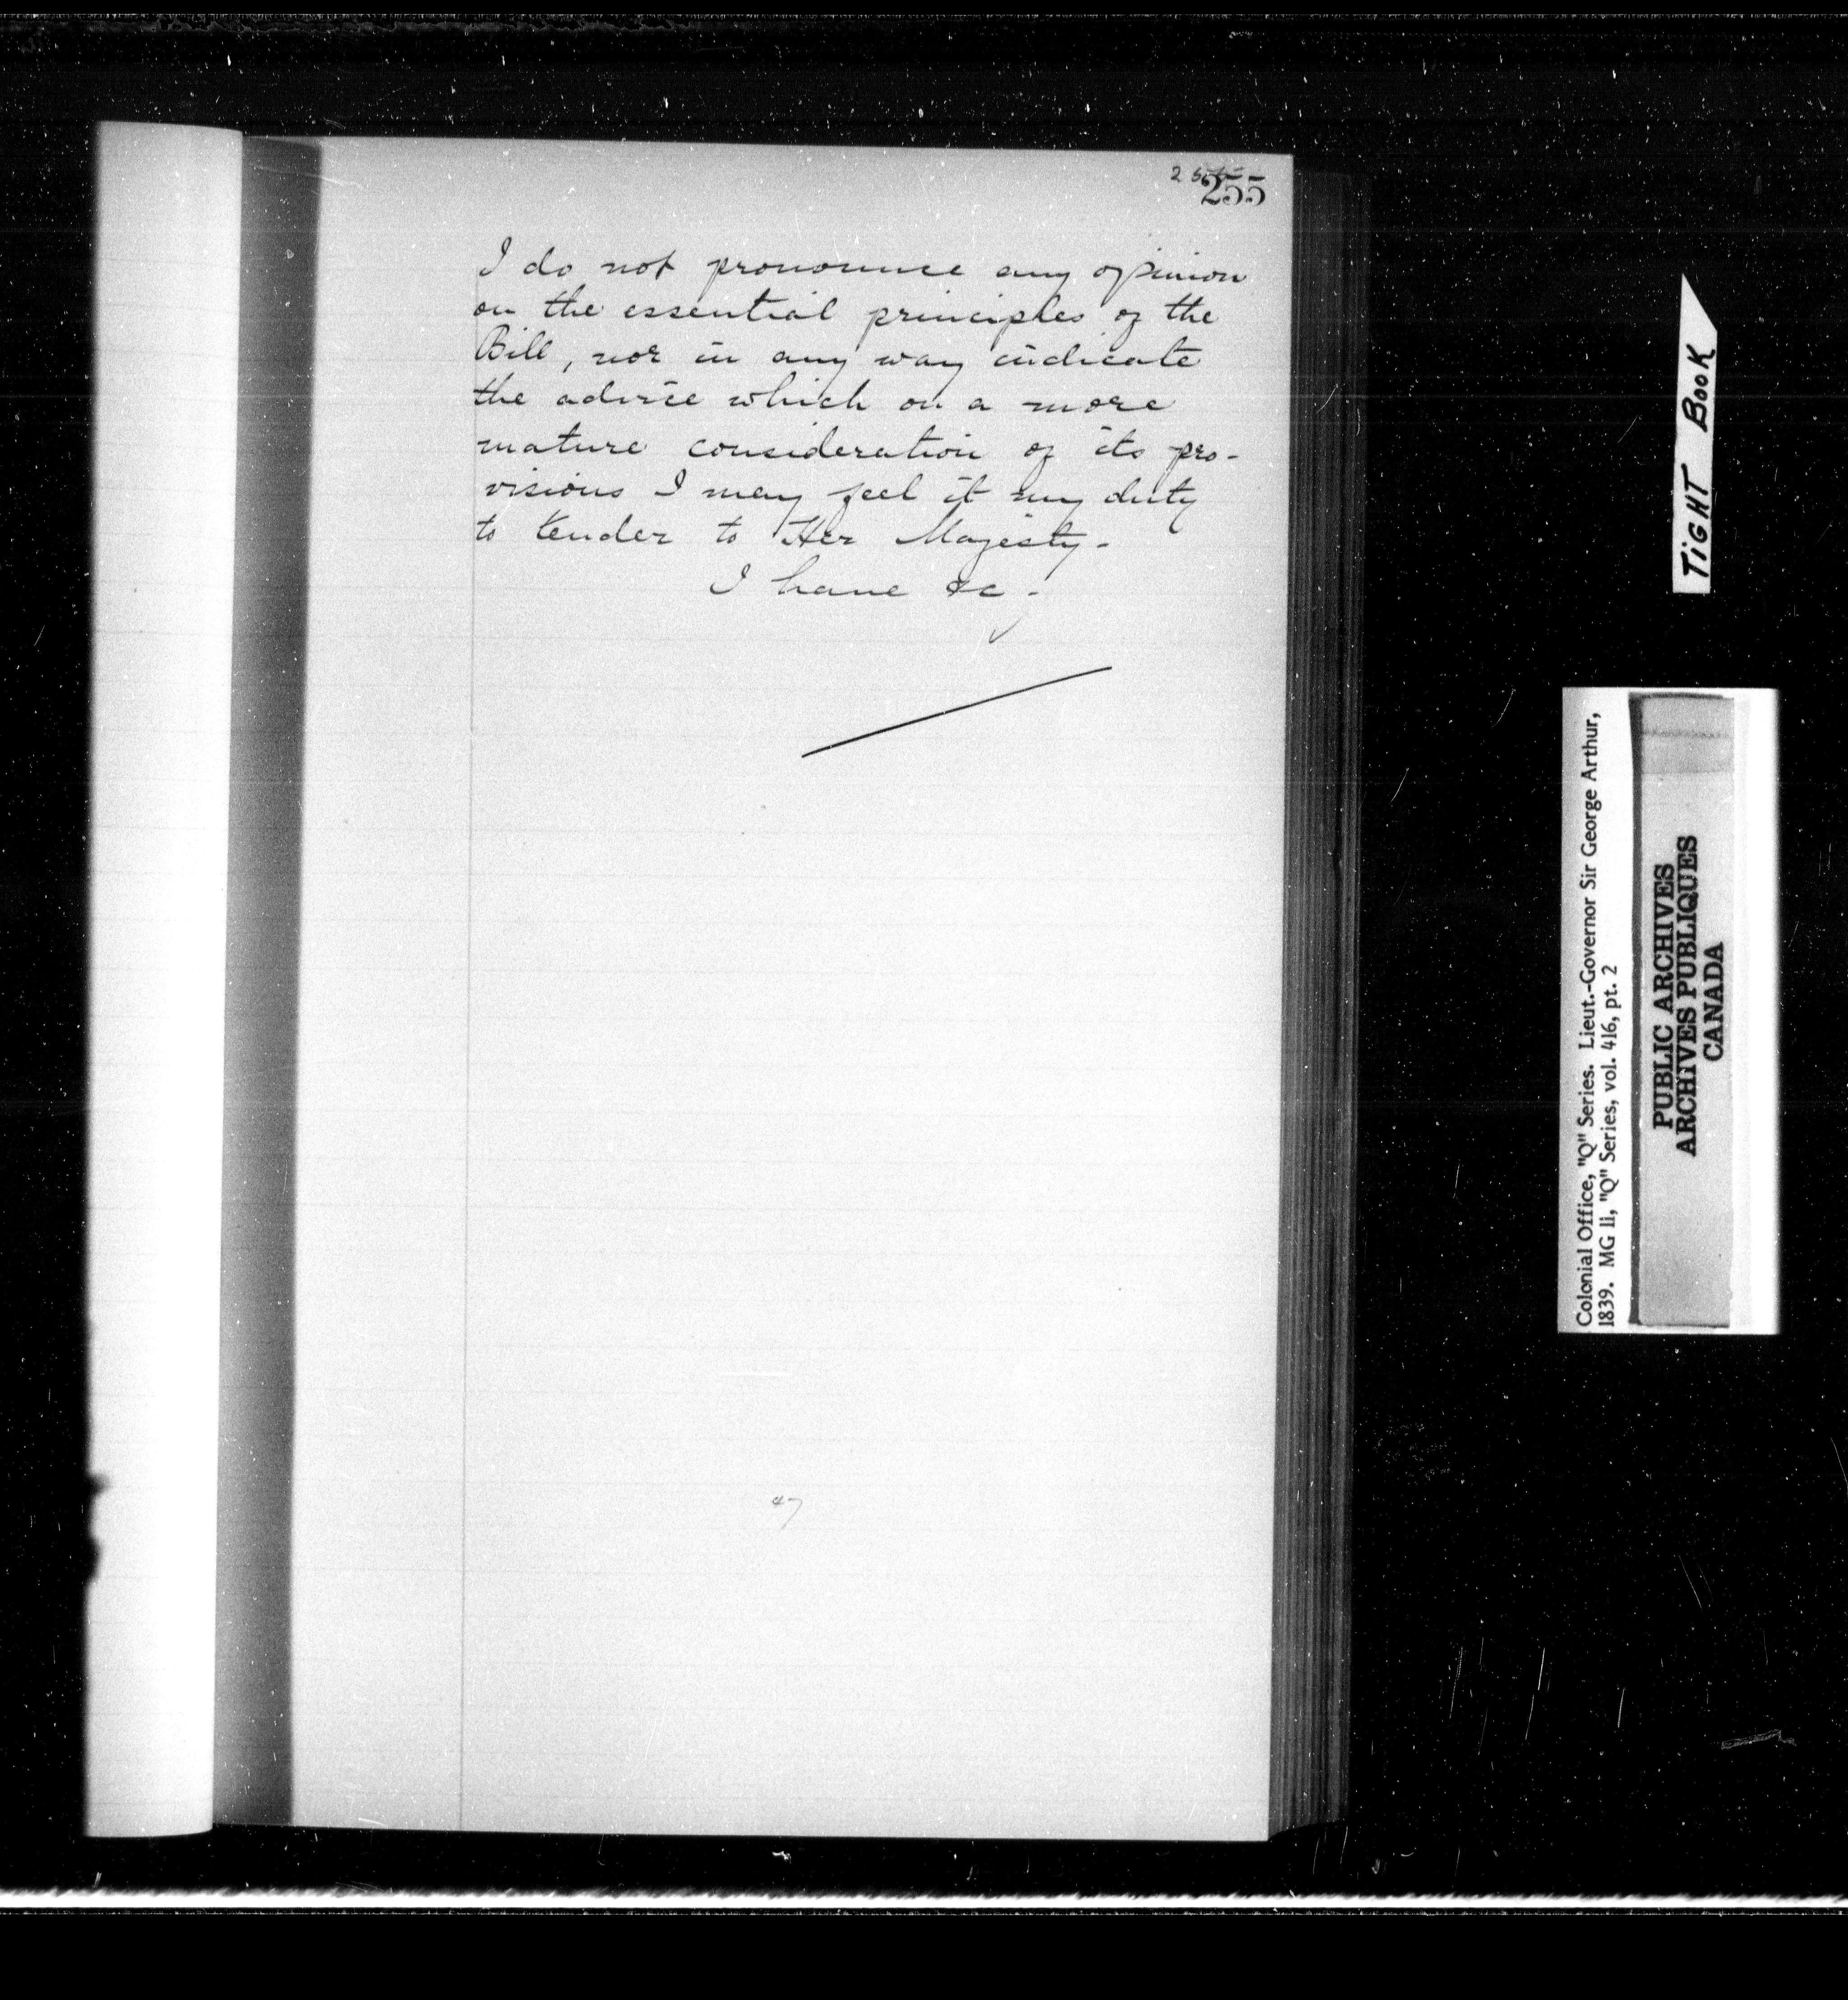 255
I do not pronounce any opinion
on the essential principles of the
Bill, nor in any way indicate
the advice which on a more
mature consideration of its pro-
visions I may feel it my duty
to tender to Her Majesty -
I have &c -
47
TIGHT BOOK
Colonial Office, "Q" Series. Lieut.-Governor Sir George Arthur,
1839. MG 11, "Q" Series, vol. 416, pt. 2
PUBLIC ARCHIVES
ARCHIVES PUBLIQUES
CANADA